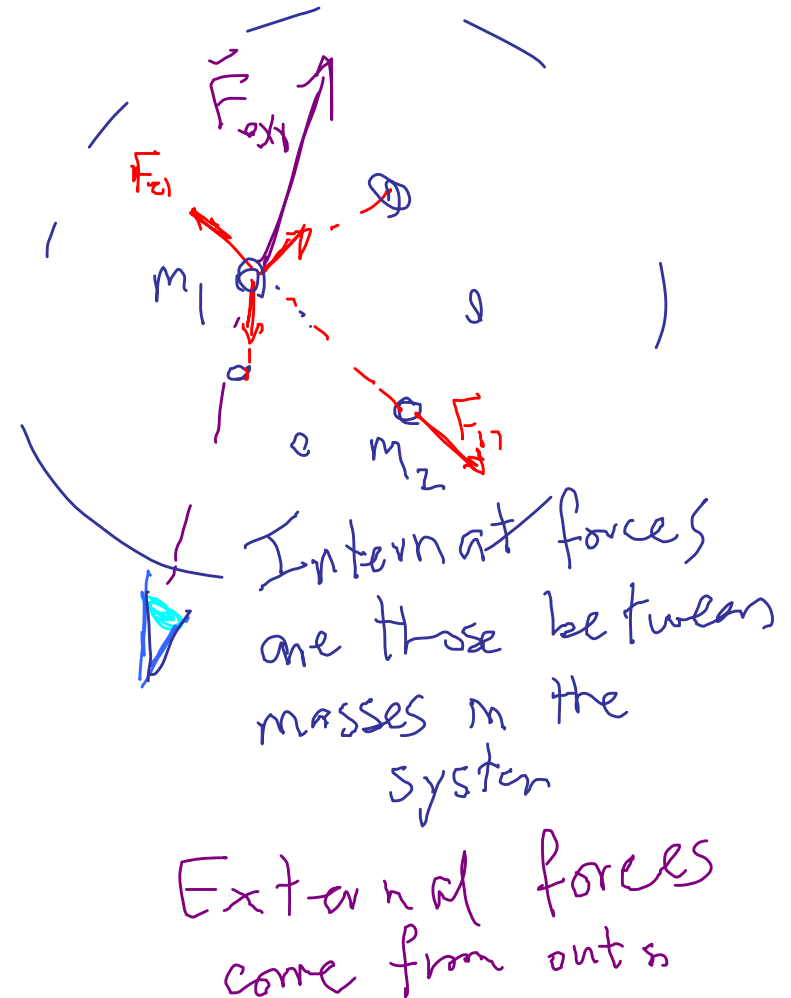 F ext
F21
m1
F12
m2
Internal forces
are those between
masses in the
system
External forces
come from outs